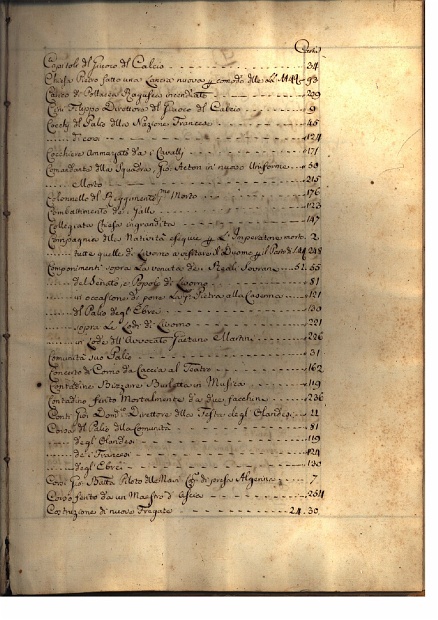 Capitoli del Giuoco del Calcio - - - 34
Chiesa Pieve fatta una Lancia nuova p comodo delle - - 93
Carico di Pollacca Ragusea incendiato - - - 209
Cav. Filippo Direttore del Giuoco del Calcio - - - 9
Carosj del Palio della Nazione Francese - - - 45
- - - di - - - 124
Cocchiere Ammazzato da i Cavalli - - - 171
Comandante della Squadra, Gio: Acton in nuovo Uniforme - - - 30
- - - Morto - - - 215
Colonnello del Reggimento Morto - - - 176
Combattimento da Galli - - - 123
Collegiata Chiesa ingrandita - - - 147
Compagnia della Natività esequie p L'Imperatore morto. 2
- - - tutte quelle di Livorno a visitare il Duomo, 248
Componimenti sopra la venuta de i Reali Sovrani - - 51. 55
- - - del Senato, e Popolo di Livorno - - - 81
- - - in occasione di porre la pª Pietra alla Caserma - - - 121
- - - del Palio degl' Ebrei - - - 130
- - - sopra le Lodi di Livorno - - - 221
- - - in Lode dell' Avvocato Gaetano Martini - - - 226
Comunità suo Palio - - - 31
Concerto di Corno da Caccia al Teatro - - - 162
Contadine Bizzare Burletta in Musica - - - 119
Contadino ferito Mortalmente da due facchini - - - 236
Conti Gio: Dom.co Direttore della Festa degl' Olandesi - - 22
Corse del Palio della Comunità - - - 81
- - - degl' Olandesi - - - 119
- - - de' i Francesi - - - 124
- - - degl' Ebrei - - - 130
Gio: Batta Piloto - - di presa Algerina - - 7
Corso ferito da un Maestro d' Ascia - - - 254
Costruzione di nuove Fregate - - - 24. 30